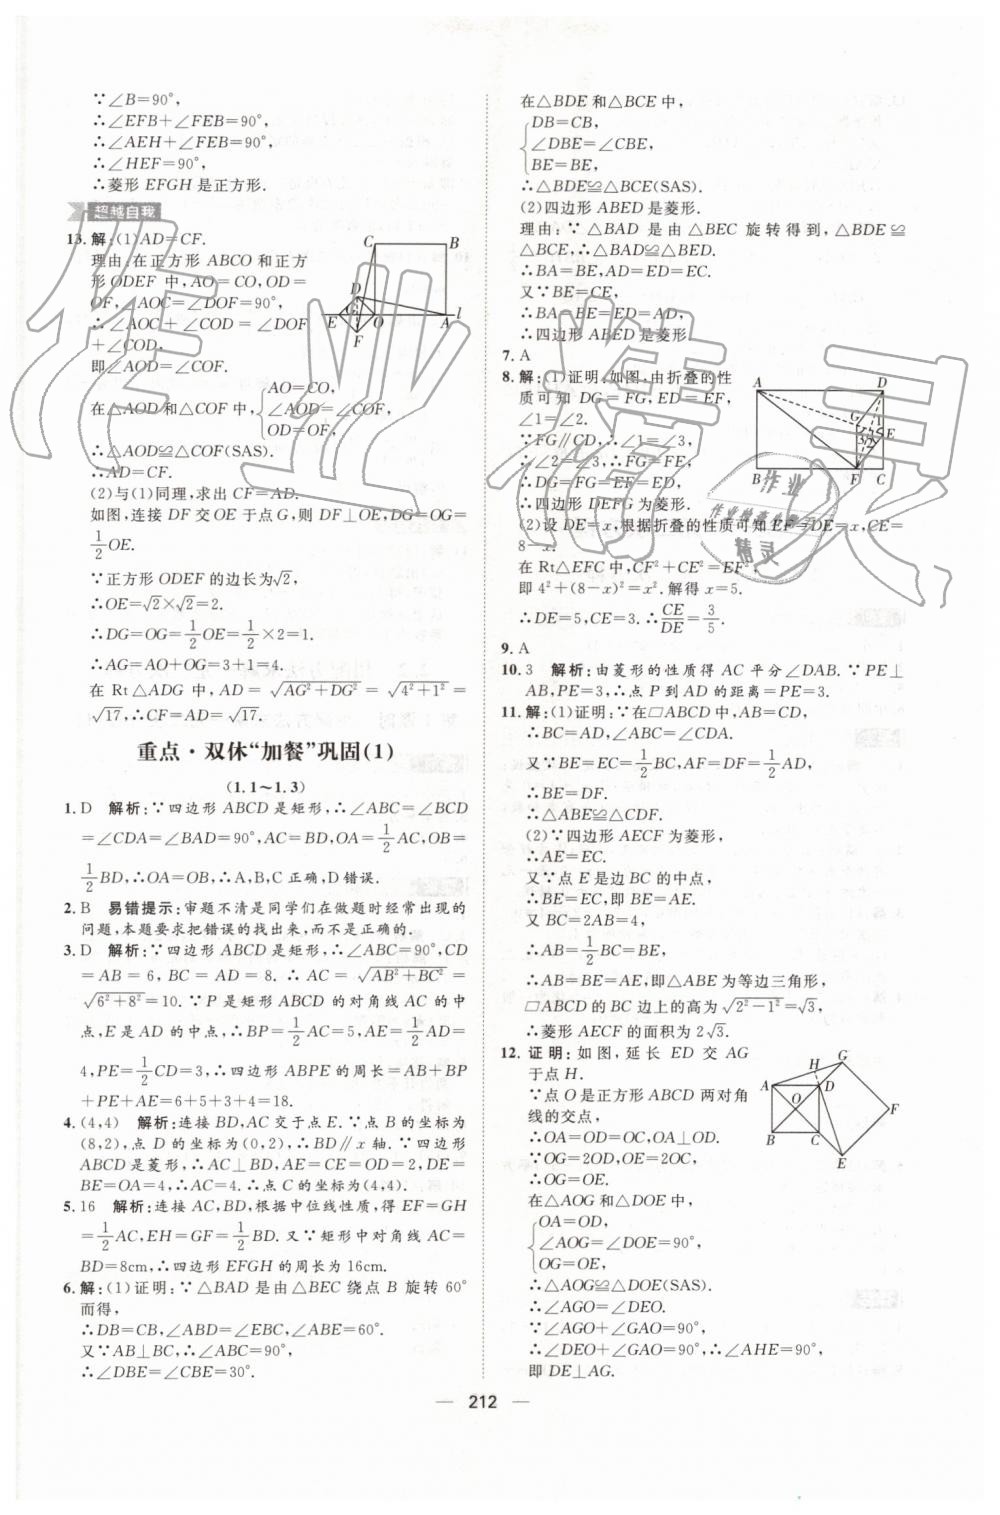 ∵∠B=90°,
∴∠EFB+∠FEB=90°,
∴∠AEH+∠FEB=90°,
∴∠HEF=90°,
∴菱形 EFGH 是正方形.
超越自我
13. 解:(1)AD=CF.
理由:在正方形 ABCO 和正方
形 ODEF 中,AO=CO,OD=
OF,∠AOC=∠DOF=90°,
∴∠AOC+∠COD=∠DOF
+∠COD,
即∠AOD=∠COF.
在△AOD 和△COF 中,{AO=CO, ∠AOD=∠COF, OD=OF,
∴△AOD≌△COF(SAS).
∴AD=CF.
(2)与(1)同理,求出 CF=AD.
如图,连接 DF 交 OE 于点 G,则 DF⊥OE,DG=OG=
1/2 OE.
∵正方形 ODEF 的边长为√2,
∴OE=√2×√2=2.
∴DG=OG=1/2 OE=1/2×2=1.
∴AG=AO+OG=3+1=4.
在 Rt△ADG 中,AD=√(AG²+DG²)=√(4²+1²)=
√17,∴CF=AD=√17.
C B D E O A l F
重点·双休“加餐”巩固(1)
(1.1~1.3)
1. D 解析:∵四边形 ABCD 是矩形,∴∠ABC=∠BCD
=∠CDA=∠BAD=90°,AC=BD,OA=1/2 AC,OB=
1/2 BD,∴OA=OB,∴A,B,C 正确,D 错误.
2. B 易错提示:审题不清是同学们在做题时经常出现的
问题,本题要求把错误的找出来,而不是正确的.
3. D 解析:∵四边形 ABCD 是矩形,∴∠ABC=90°,CD
=AB=6,BC=AD=8.∴AC=√(AB²+BC²)=
√(6²+8²)=10.∵P 是矩形 ABCD 的对角线 AC 的中
点,E 是 AD 的中点,∴BP=1/2 AC=5,AE=1/2 AD=
4,PE=1/2 CD=3,∴四边形 ABPE 的周长=AB+BP
+PE+AE=6+5+3+4=18.
4. (4,4) 解析:连接 BD,AC 交于点 E.∵点 B 的坐标为
(8,2),点 D 的坐标为(0,2),∴BD∥x 轴.∵四边形
ABCD 是菱形,∴AC⊥BD,AE=CE=OD=2,DE=
BE=OA=4,∴AC=4.∴点 C 的坐标为(4,4).
5. 16 解析:连接 AC,BD,根据中位线性质,得 EF=GH
=1/2 AC,EH=GF=1/2 BD.又∵矩形中对角线 AC=
BD=8cm,∴四边形 EFGH 的周长为 16cm.
6. 解:(1)证明:∵△BAD 是由△BEC 绕点 B 旋转 60°
而得,
∴DB=CB,∠ABD=∠EBC,∠ABE=60°.
又∵AB⊥BC,∴∠ABC=90°.
∴∠DBE=∠CBE=30°.
在△BDE 和△BCE 中,
{DB=CB,
∠DBE=∠CBE,
BE=BE,
∴△BDE≌△BCE(SAS).
(2)四边形 ABED 是菱形.
理由:∵△BAD 是由△BEC 旋转得到,△BDE≌
△BCE,∴△BAD≌△BED.
∴BA=BE,AD=ED=EC.
又∵BE=CE,
∴BA=BE=ED=AD,
∴四边形 ABED 是菱形.
7. A
8. 解:(1)证明:如图,由折叠的性
质可知 DG=FG,ED=EF,
∠1=∠2.
∵FG∥CD,∴∠1=∠3,
∴∠2=∠3,∴FG=FE,
∴DG=FG=EF=ED,
∴四边形 DEFG 为菱形.
A D G 1 E 3 2 B F C
(2)设 DE=x,根据折叠的性质可知 EF=DE=x,CE=
8-x.
在 Rt△EFC 中,CF²+CE²=EF²,
即 4²+(8-x)²=x².解得 x=5.
∴DE=5,CE=3.∴CE/DE=3/5.
9. A
10. 3 解析:由菱形的性质得 AC 平分∠DAB.∵PE⊥
AB,PE=3,∴点 P 到 AD 的距离=PE=3.
11. 解:(1)证明:∵在▱ABCD 中,AB=CD,
∴BC=AD,∠ABC=∠CDA.
又∵BE=EC=1/2 BC,AF=DF=1/2 AD,
∴BE=DF.
∴△ABE≌△CDF.
(2)∵四边形 AECF 为菱形,
∴AE=EC.
又∵点 E 是边 BC 的中点,
∴BE=EC,即 BE=AE.
又 BC=2AB=4,
∴AB=1/2 BC=BE,
∴AB=BE=AE,即△ABE 为等边三角形,
▱ABCD 的 BC 边上的高为√(2²-1²)=√3,
∴菱形 AECF 的面积为 2√3.
12. 证明:如图,延长 ED 交 AG
于点 H.
∵点 O 是正方形 ABCD 两对角
线的交点,
∴OA=OD=OC,OA⊥OD.
∵OG=2OD,OE=2OC,
∴OG=OE.
在△AOG 和△DOE 中,
{OA=OD,
∠AOG=∠DOE=90°,
OG=OE,
∴△AOG≌△DOE(SAS).
∴∠AGO=∠DEO.
∵∠AGO+∠GAO=90°,
∴∠DEO+∠GAO=90°,∴∠AHE=90°,
即 DE⊥AG.
H G A D O F B C E
作业精灵
作业
作业检查小
精灵
— 212 —